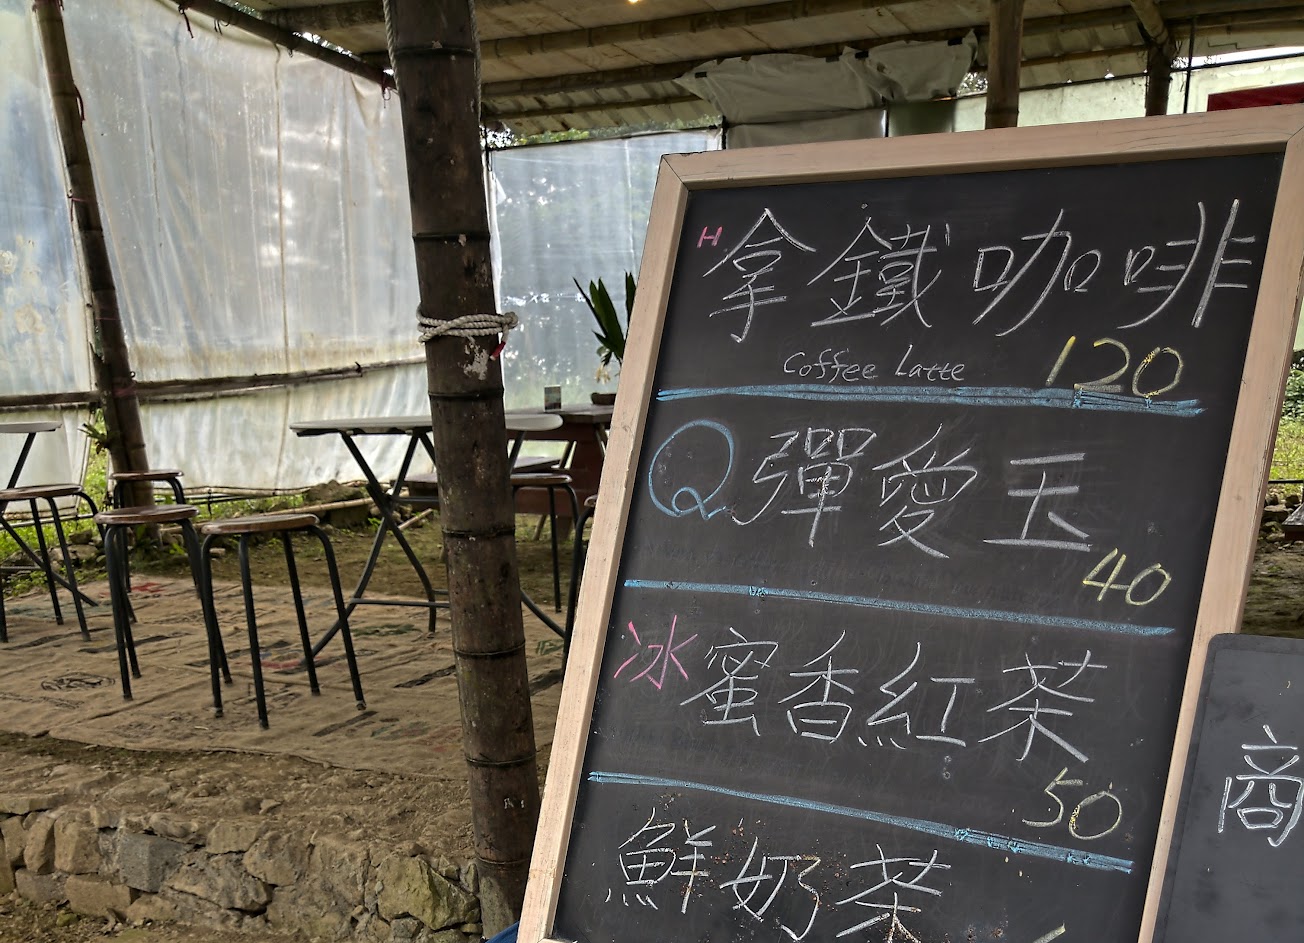 H 拿鐵咖啡
Coffee Latte 120
Q彈愛玉
40
冰 蜜香紅茶
50
鮮奶茶
商